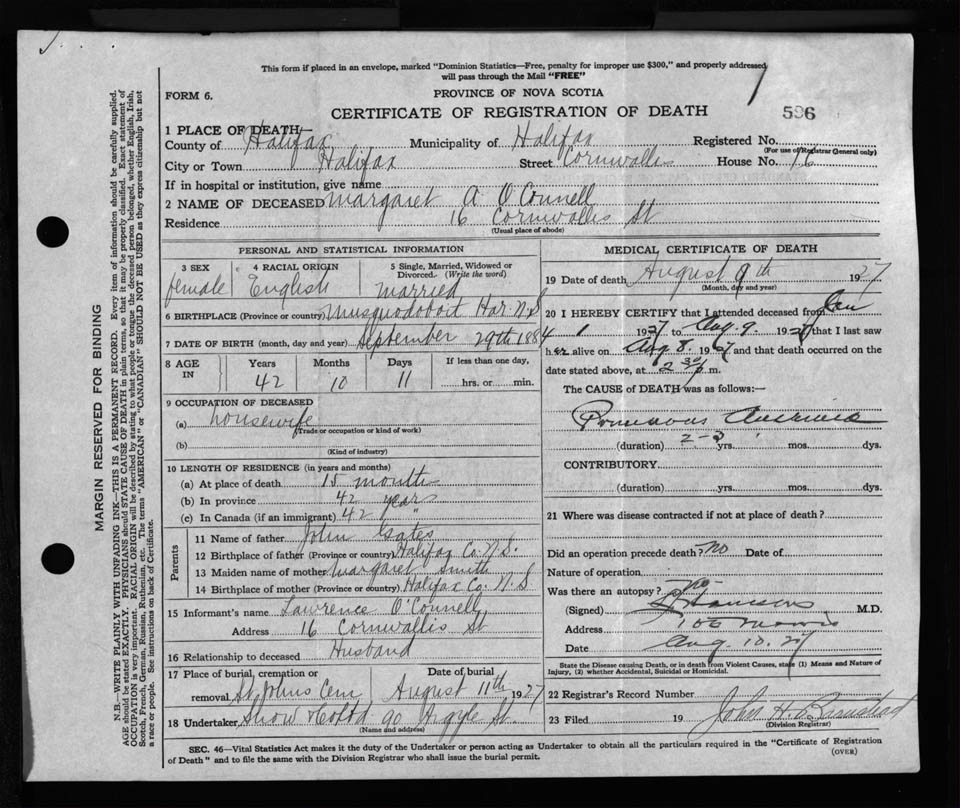 This form if placed in an envelope, marked "Dominion Statistics—Free, penalty for improper use $300," and properly addressed
will pass through the Mail "FREE"
FORM 6.
PROVINCE OF NOVA SCOTIA
CERTIFICATE OF REGISTRATION OF DEATH
596
1 PLACE OF DEATH,
County of Halifax Municipality of Halifax Registered No.
(For use of Registrar General only)
City or Town Halifax Street Cornwallis House No. 16
If in hospital or institution, give name
2 NAME OF DECEASED Margaret A O'Connell
Residence 16 Cornwallis St
(Usual place of abode)
PERSONAL AND STATISTICAL INFORMATION
3 SEX 4 RACIAL ORIGIN 5 Single, Married, Widowed or Divorced. (Write the word)
female English married
6 BIRTHPLACE (Province or country) Musquodoboit Har N.S
7 DATE OF BIRTH (month, day and year) September 29th 1884
8 AGE IN Years Months Days If less than one day,
42 10 11 hrs. or min.
9 OCCUPATION OF DECEASED
(a) housewife
(Trade or occupation or kind of work)
(b)
(Kind of industry)
10 LENGTH OF RESIDENCE (in years and months)
(a) At place of death 15 months
(b) In province 42 years
(c) In Canada (if an immigrant) 42 "
Parents
11 Name of father John Gates
12 Birthplace of father (Province or country) Halifax Co. N.S.
13 Maiden name of mother Margaret Smith
14 Birthplace of mother (Province or country) Halifax Co. N.S
15 Informant's name Lawrence O'Connell
Address 16 Cornwallis St
16 Relationship to deceased Husband
17 Place of burial, cremation or removal Date of burial
St Johns Cem August 11th 1927
18 Undertaker Snow & Co Ltd 90 Argyle St.
(Name and address)
MEDICAL CERTIFICATE OF DEATH
19 Date of death August 9th 1927
(Month, day and year)
20 I HEREBY CERTIFY that I attended deceased from Jan
1 1927 to Aug. 9. 1927 that I last saw
her alive on Aug 8. 1927 and that death occurred on the
date stated above, at 2 30 p m.
The CAUSE of DEATH was as follows:—
Pernicious Anaemia
(duration) 2-3 yrs. mos. dys.
CONTRIBUTORY
(duration) yrs. mos. dys.
21 Where was disease contracted if not at place of death?
Did an operation precede death? No Date of
Nature of operation
Was there an autopsy? No
(Signed) M.D.
Address 106 Morris
Date Aug. 10. 27
State the Disease causing Death, or in death from Violent Causes, state (1) Means and Nature of
Injury, and (2) whether Accidental, Suicidal or Homicidal.
22 Registrar's Record Number
23 Filed 19 John H.
(Division Registrar)
SEC. 46—Vital Statistics Act makes it the duty of the Undertaker or person acting as Undertaker to obtain all the particulars required in the "Certificate of Registration
of Death" and to file the same with the Division Registrar who shall issue the burial permit.
(OVER)
MARGIN RESERVED FOR BINDING
N.B.—WRITE PLAINLY WITH UNFADING INK—THIS IS A PERMANENT RECORD. Every item of information should be carefully supplied.
AGE should be stated EXACTLY. PHYSICIANS should STATE CAUSE OF DEATH in plain terms, so that it may be properly classified. Exact statement of
OCCUPATION is very important. RACIAL ORIGIN will be described by stating to what people or tongue the deceased person belonged, whether English, Irish,
Scotch, French, German, Russian, Ruthenian, etc. The terms "AMERICAN" or "CANADIAN" SHOULD NOT BE USED as they express citizenship but not
a race or people. See instructions on back of Certificate.